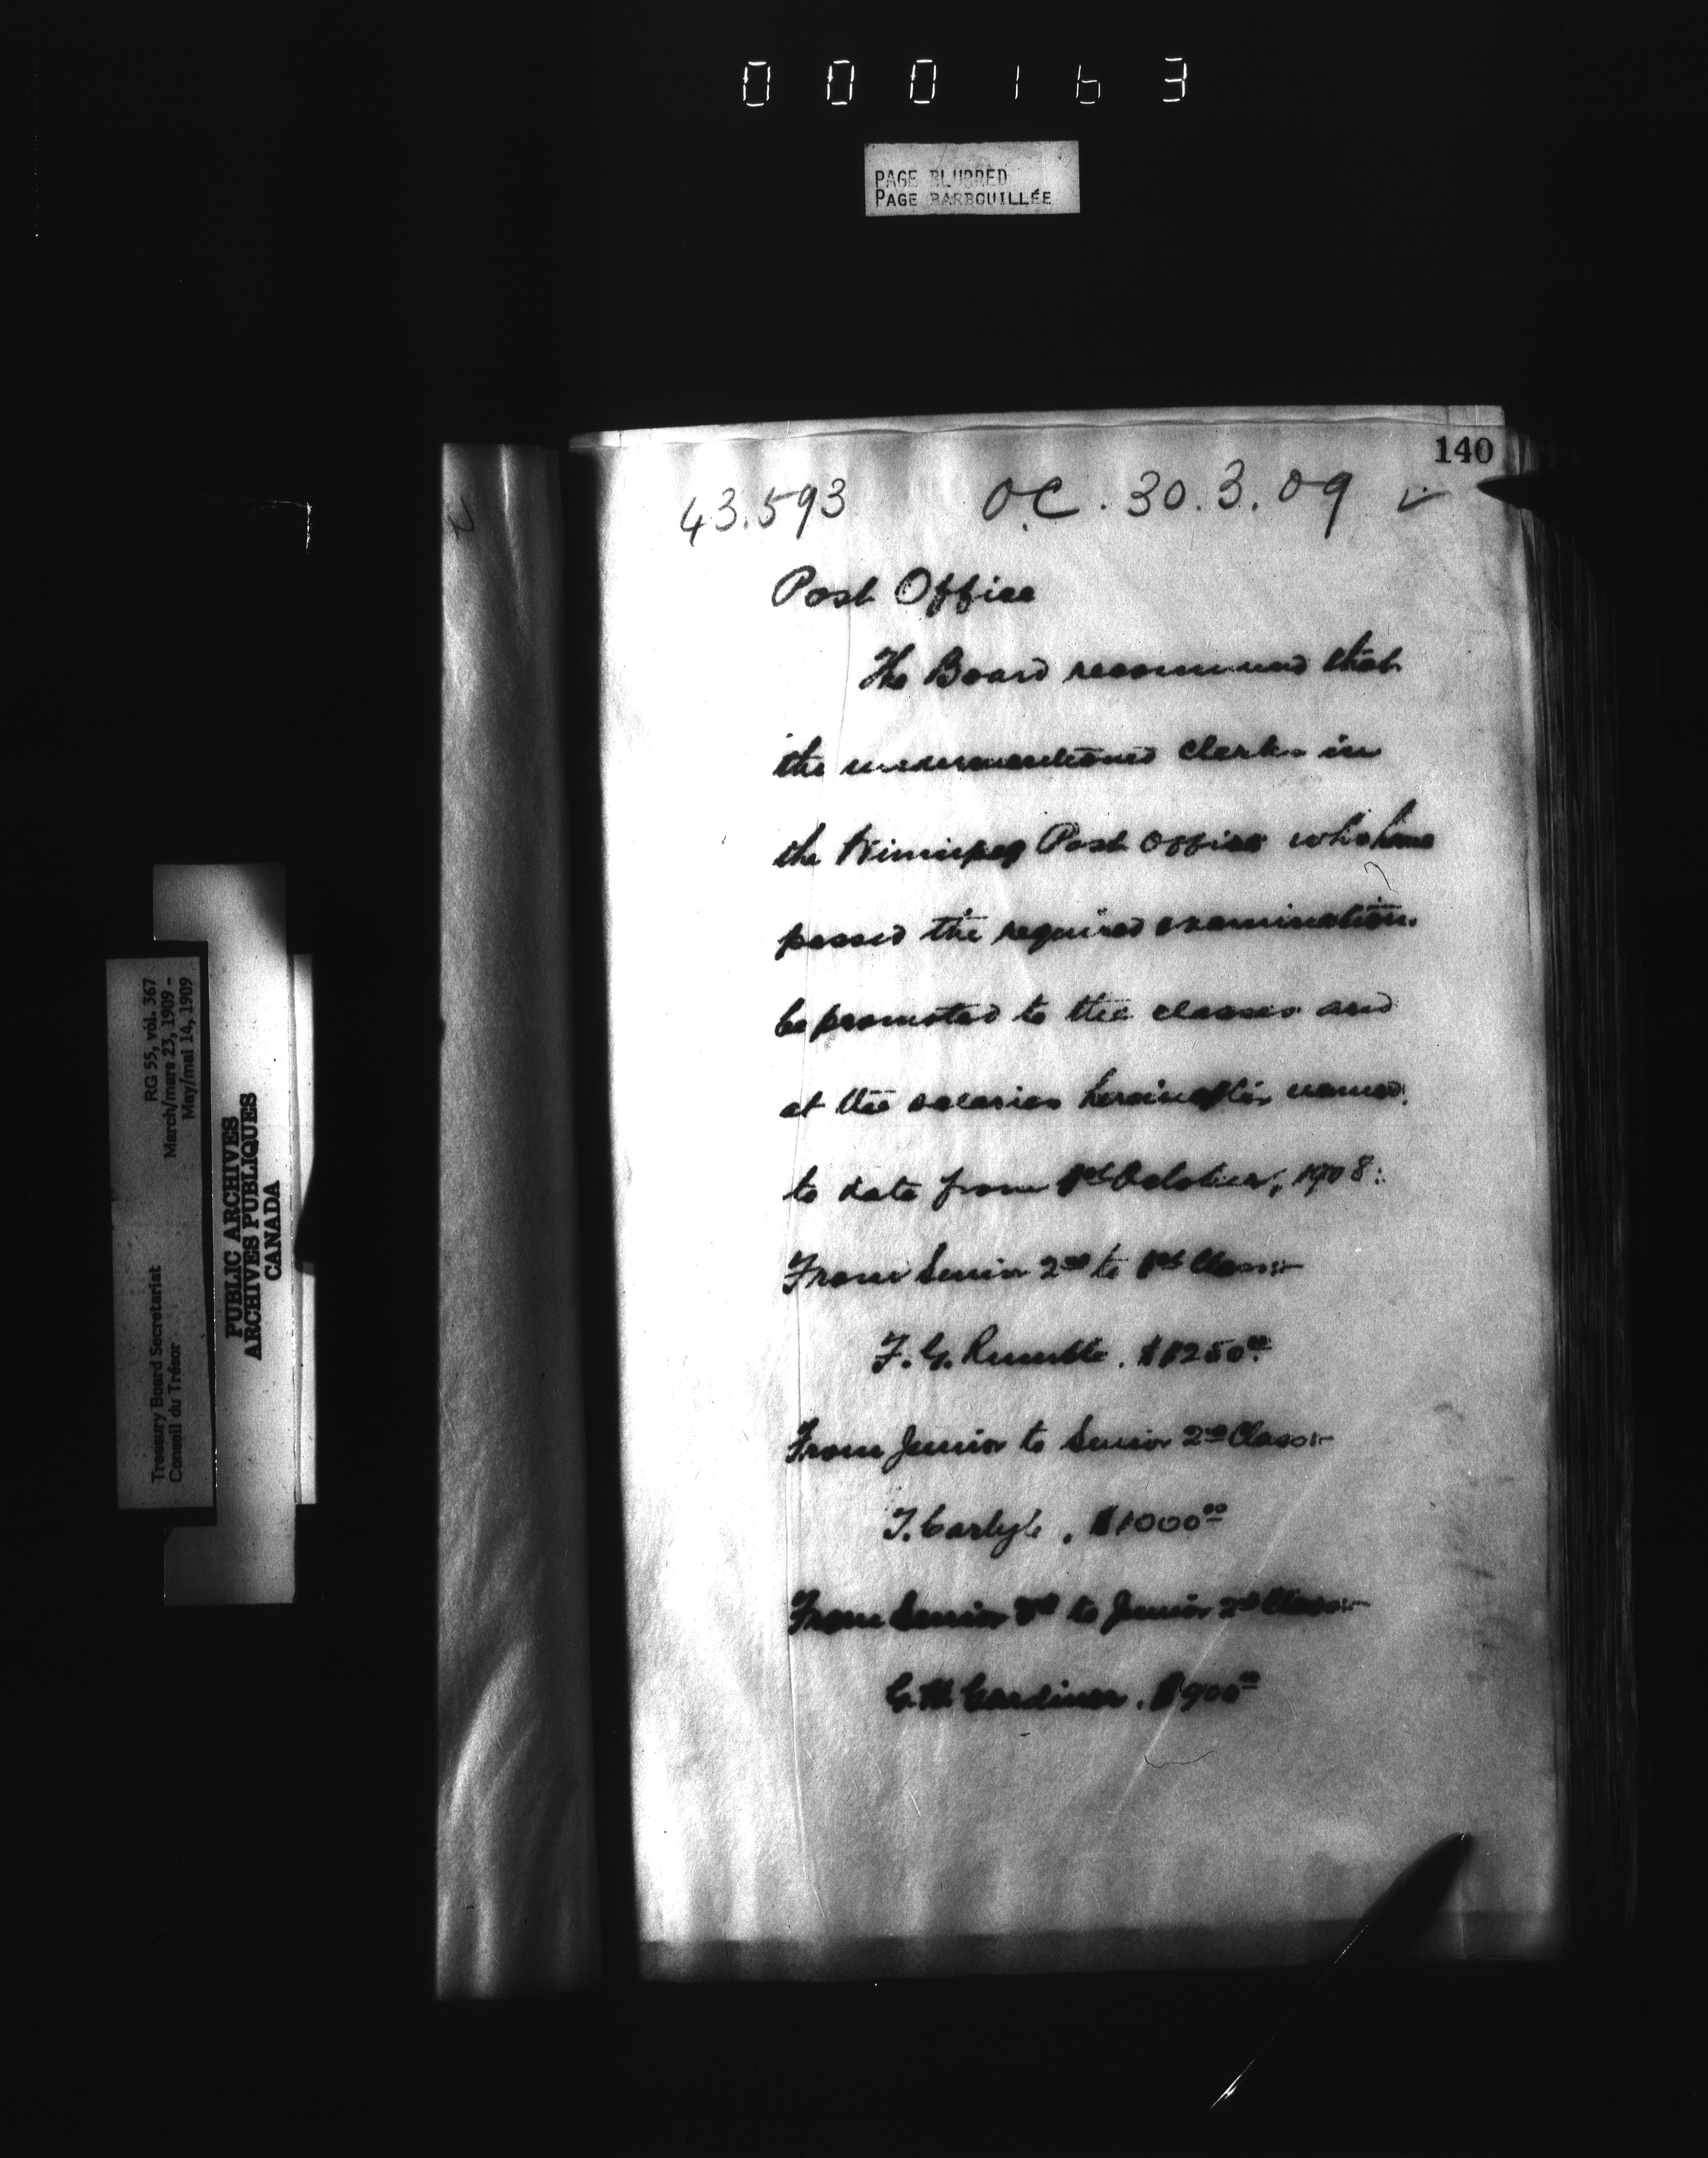 000163
PAGE BLURRED
PAGE BARBOUILLÉE
140
43.593 O.C. 30.3.09
Post Office
The Board recommend that
the undermentioned clerks in
the Winnipeg Post Office who have
passed the required examination
be promoted to the classes and
at the salaries hereinafter named,
to date from 1st October, 1908:
From Senior 2nd to 1st Class:-
F. G. Rumble. $1250.00
From Junior to Senior 2nd Class:-
T. Carlyle. $1000.00
From Senior 3rd to Junior 2nd Class:-
G. H. Gardiner. $900.00
RG 55, vol. 367
March/mars 23, 1909 -
May/mai 14, 1909
Treasury Board Secretariat
Conseil du Trésor
PUBLIC ARCHIVES
ARCHIVES PUBLIQUES
CANADA